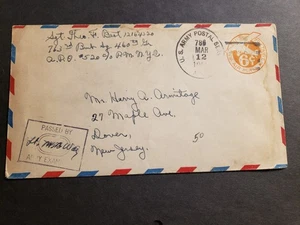 Sgt. Theo. F. Bist 12161220
763rd Bomb Sq. 460th Gp
A.P.O #520 c/o P.M. N.Y.C.
U.S. ARMY POSTAL SVC
788
MAR
12
6¢
Mr. Harry A. Armitage
27 Maple Ave.
Dover,
New Jersey.
50
PASSED BY
ARMY EXAMINER